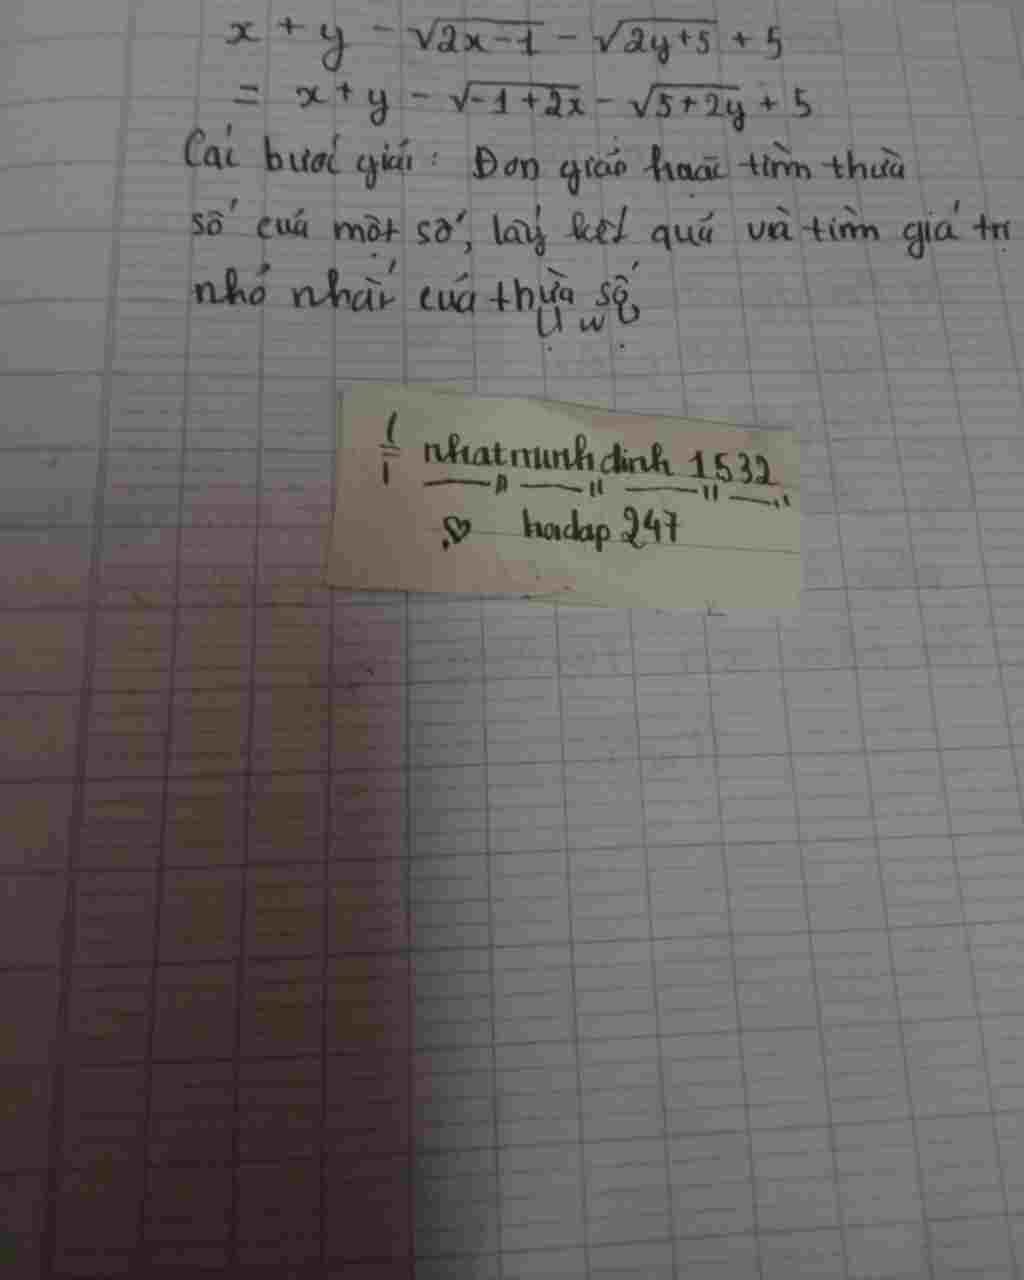 x + y - √2x-1 - √2y+5 + 5
= x + y - √-1+2x - √5+2y + 5
Các bước giải: Đơn giản hoặc tìm thừa
số của một số, lấy kết quả và tìm giá trị
nhỏ nhất của thừa số
UwU
nhatminhdinh 1532
hoidap 247